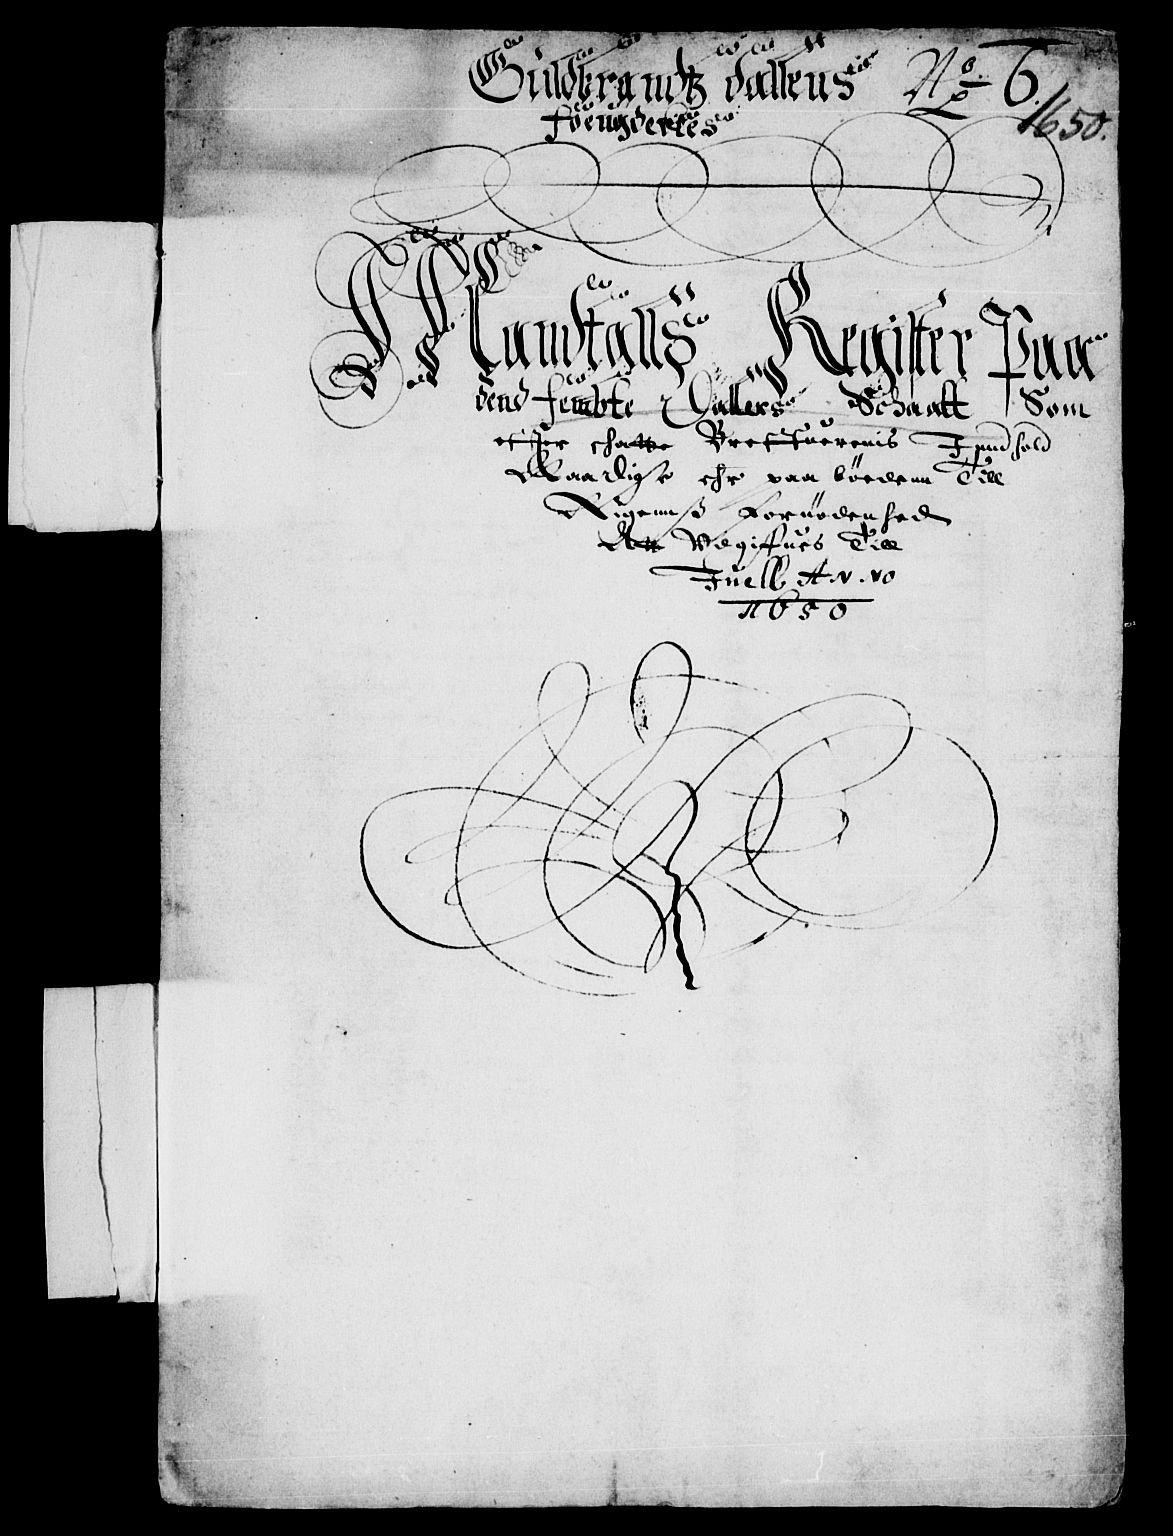 Guldbrandtz dallens No 6.
foeugderies 1650.
Mandtalls Register Paa
dend fembte Dallers Schaatt Som
effter chatte Breffuernis Jndhold
Naadigst ehr paa böedenn Till
Rigennß Fornödenhed
Att Vdgiffues Till
Juell Anno
1650